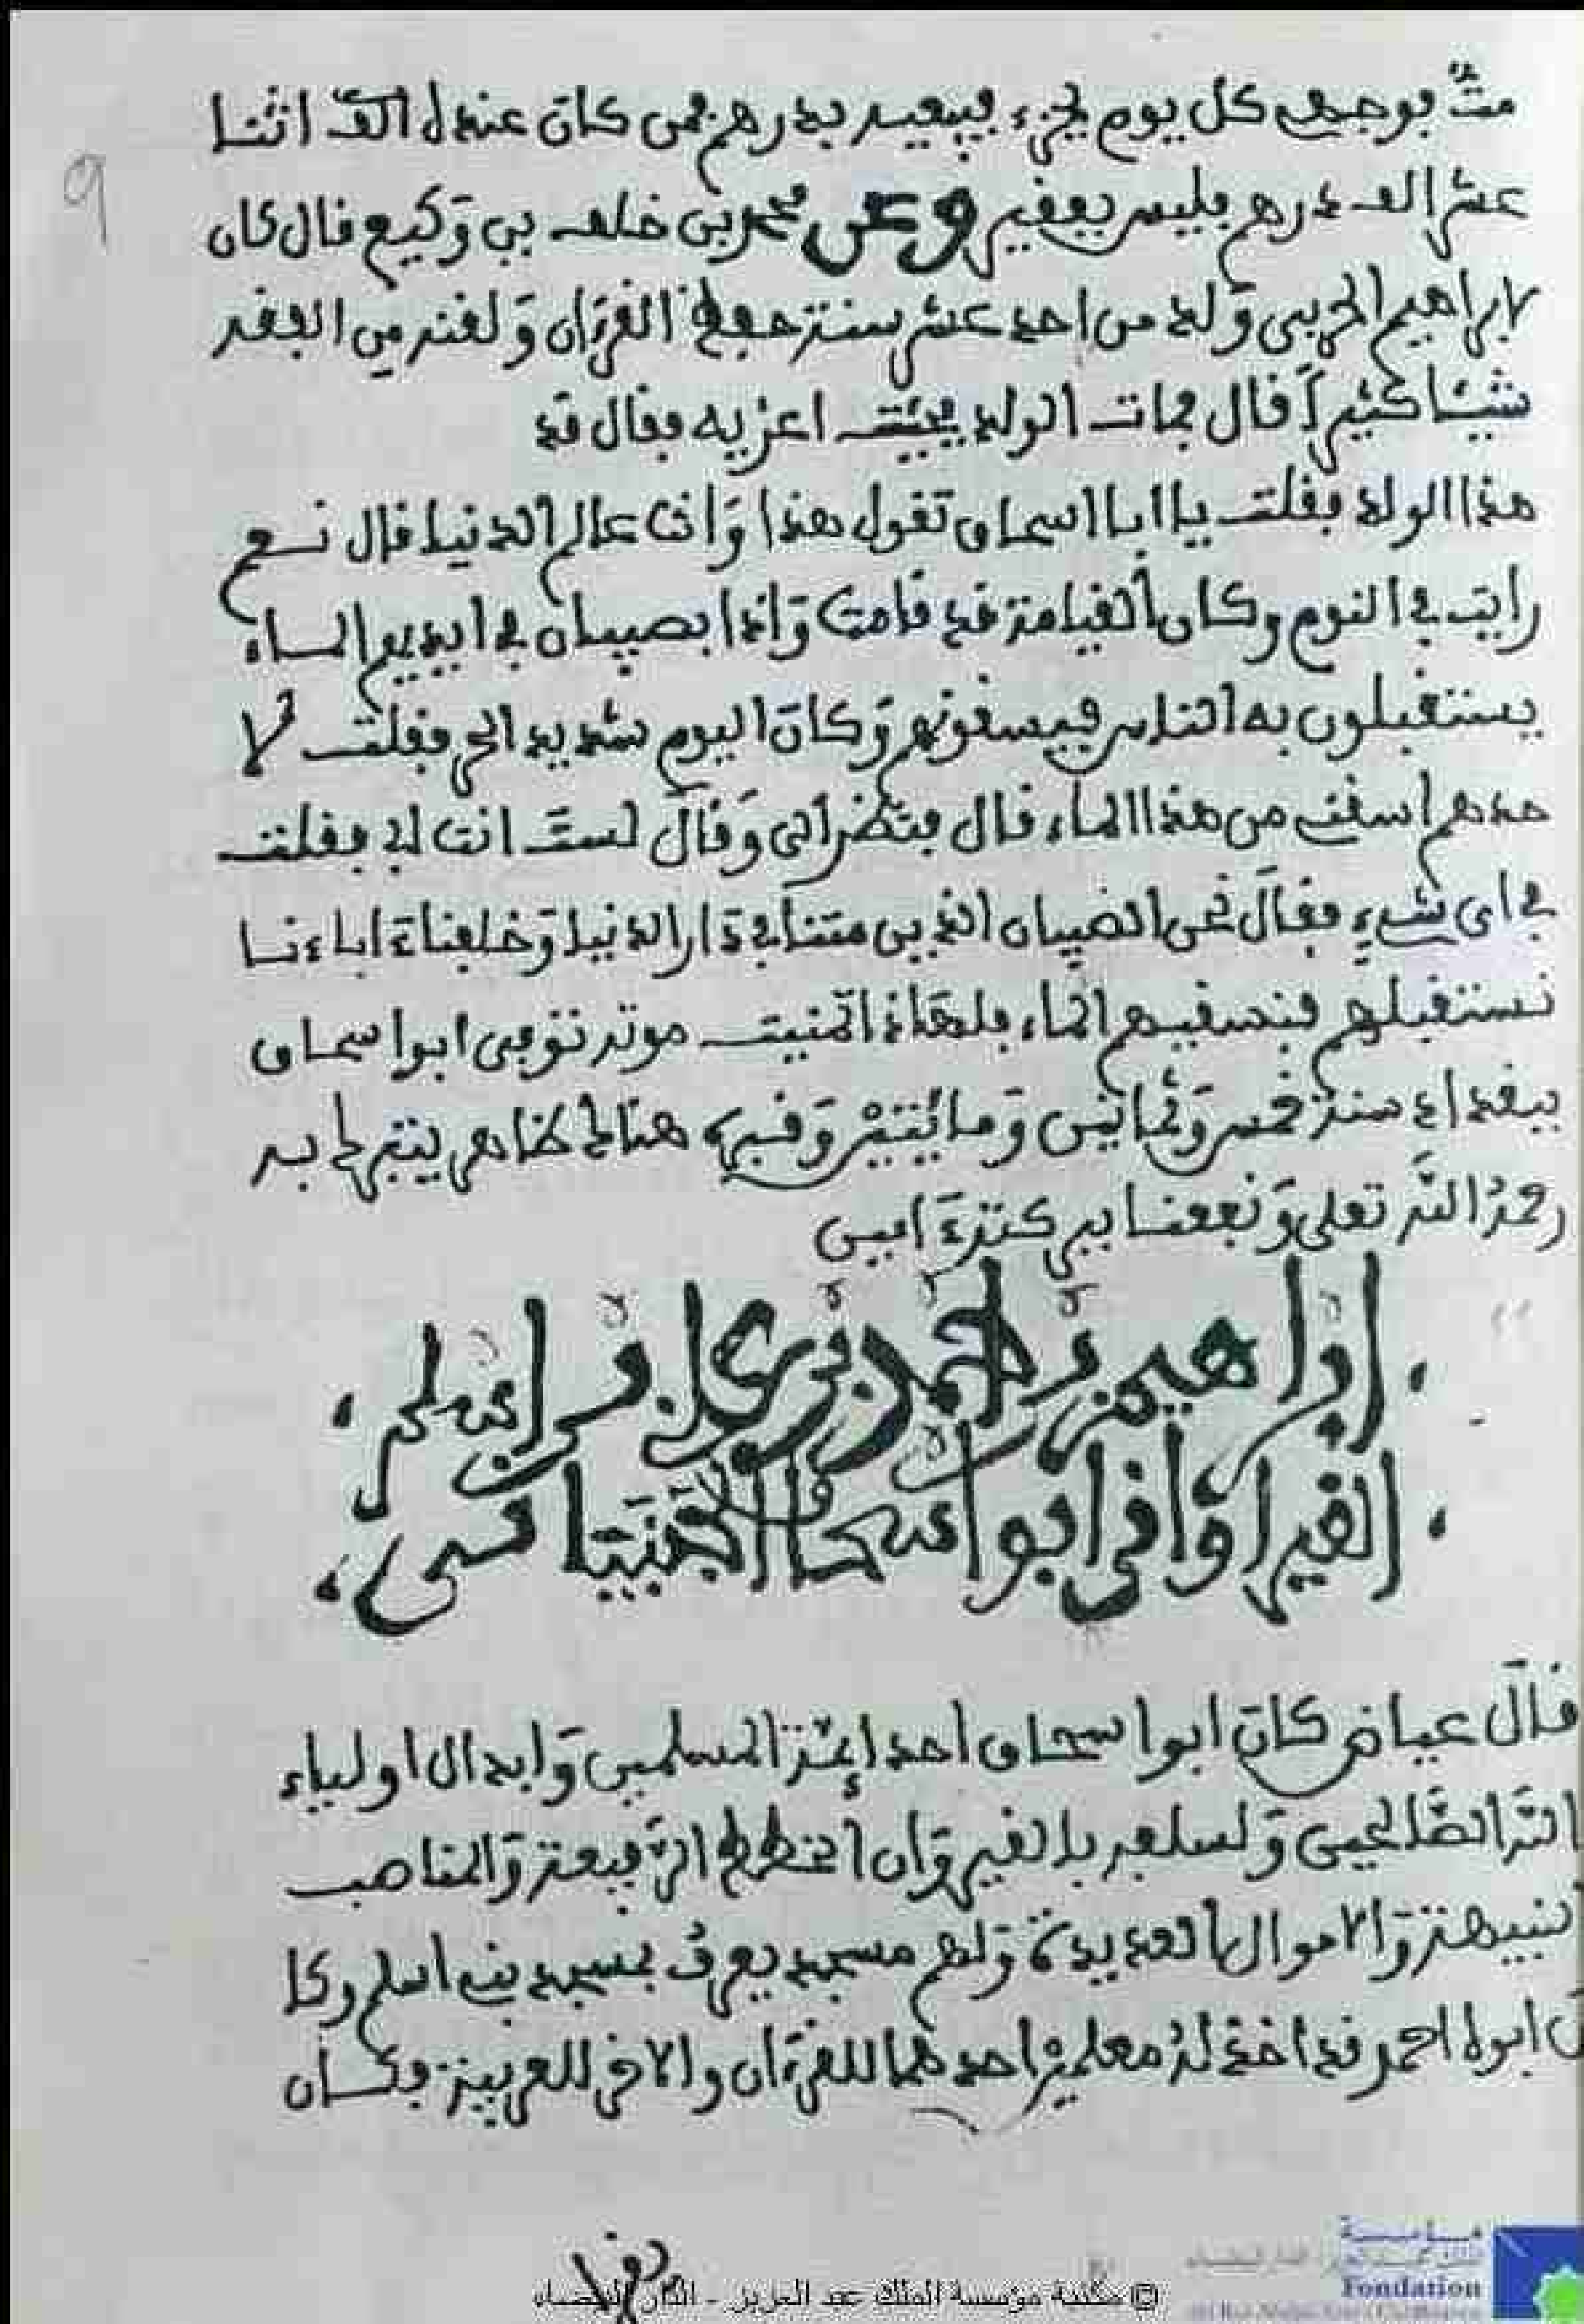 متُّ فوجهي كل يوم بجزء فبيعيه بدرهم فمن كان عنده الف اثنا
عشر الف درهم فليس بفقير وعن محمد بن خلف بن وكيع قال كان
لابراهيم الحربي ولد من احد عشر سنة حفظ القرءان ولقنه من الفقه
شيئا كثيرا قال فمات الولد فجئت اعزيه فقال قد
هذا الولد فقلت يا ابا اسحاق تقول هذا وانت عالم الدنيا قال نعم
رايت في النوم وكان القيامة قد قامت واذا بصبيان في ايديهم الماء
يستقبلون به الناس فيسقونهم وكان اليوم شديد الحر فقلت لا
حدهم اسقني من هذا الماء قال فنظر الي وقال لست انت ابي فقلت
في اي شيء فقال نحن الصبيان الذين متنا في دار الدنيا وخلفنا ءاباءنا
نستقبلهم فنسقيهم الماء فلهاذا تمنيت موته توفي ابو اسحاق
ببغداد سنة خمس وثمانين ومائتين وقبره هناك ظاهر يتبرك به
رحمه الله تعلى ونفعنا ببركته ءامين
ابراهيم بن احمد بن علي بن اسلم
القيرواني ابو اسحاق الجبنياني
قال عياض كان ابو اسحاق احد ائمة المسلمين وابدال اولياء
الله الصالحين ولسلفه بالقيروان الخطط الرفيعة والمناصب
النبيهة والاموال العديدة ولهم مسجد يعرف بمسجد بني اسلم وكا
ن ابوه احمد قد اخذ له معلمين احدهما للقرءان والاخر للعربية فكان
© مكتبة مؤسسة الملك عبد العزيز - الدار البيضاء
مؤسسة
Fondation
9